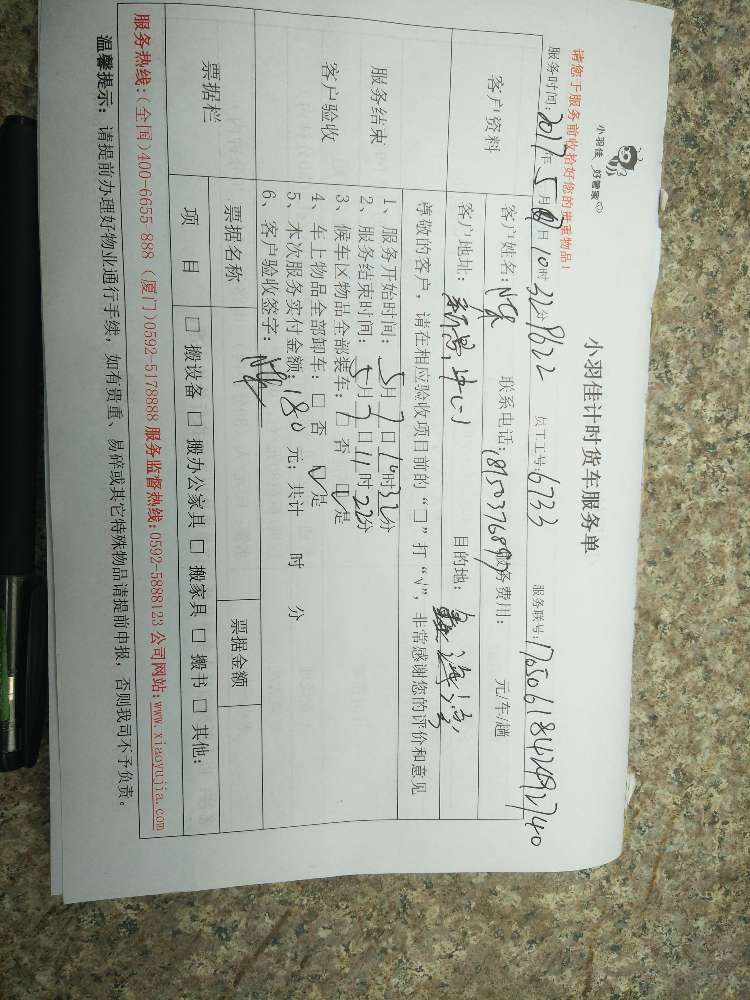 小羽佳 好管家
小羽佳计时货车服务单
请您于服务前收拾好您的贵重物品!
服务时间: 2017年 5月 日 10时 32分 9622 员工工号: 6733 服务联号:
客户资料
客户姓名: 联系电话: 服务费用: 元/车/趟
客户地址: 目的地:
服务结束
客户验收
尊敬的客户，请在相应验收项目前的“□”打“√”，非常感谢您的评价和意见
1、服务开始时间: 5月 7日 10时 32分
2、服务结束时间: 5月 7日 11时 22分
3、候车区物品全部装车: □ 否 √是
4、车上物品全部卸车: □ 否 √是
5、本次服务实付金额: 180 元; 共计 时 分
6、客户验收签字:
票据栏
票据名称 票据金额
项 目 □ 搬设备 □ 搬办公家具 □ 搬家具 □ 搬书 □ 其他:
服务热线:(全国)400-6655 888 (厦门)0592-5178888 服务监督热线:0592-5888123 公司网站:www.xiaoyujia.com
温馨提示: 请提前办理好物业通行手续，如有贵重、易碎或其它特殊物品请提前申报，否则我司不予负责。